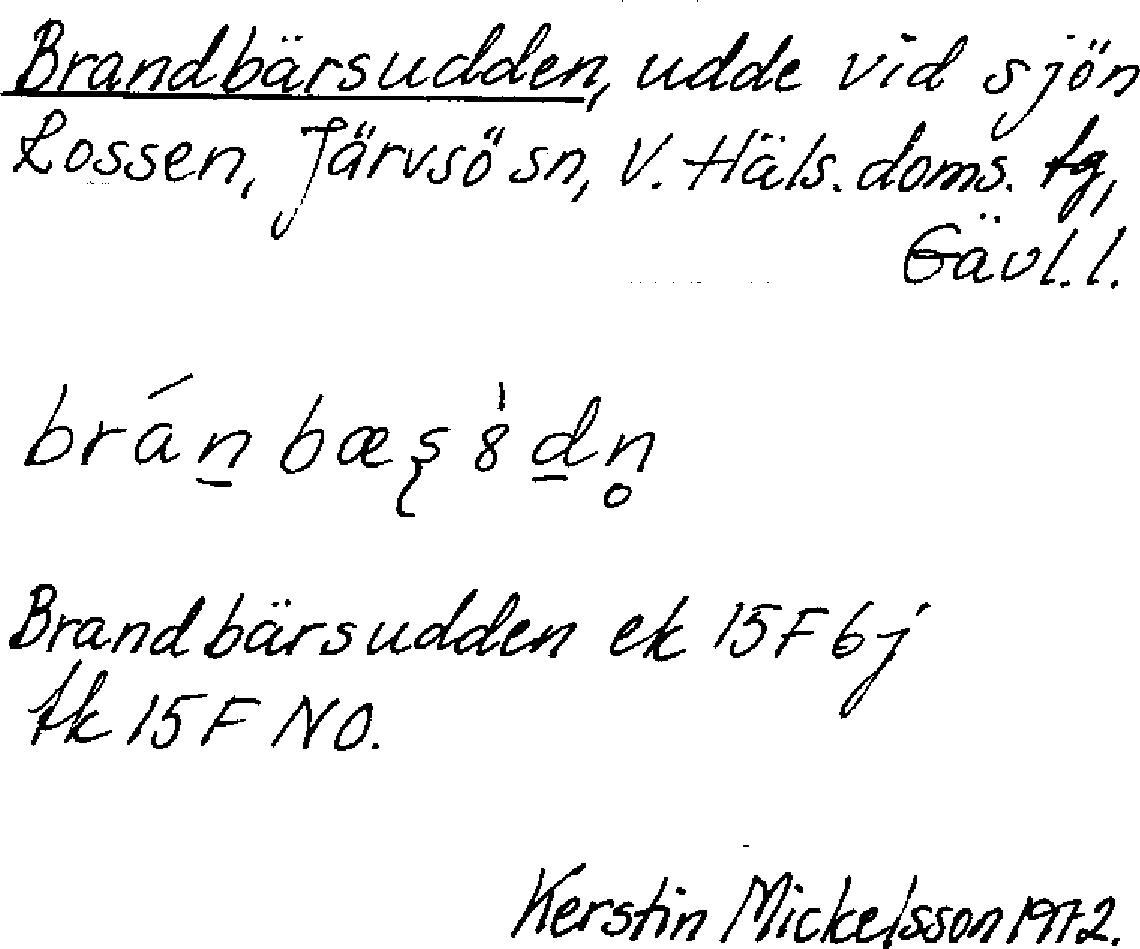 Brandbärsudden, udde vid sjön
Lossen, Järvsö sn, V. Häls. doms. tg,
Gävl. l.
brá​n̲bæʂ 8̍d̲n̥
Brandbärsudden ek 15F6j
tk 15F NO.
Kerstin Mickelsson 1972.